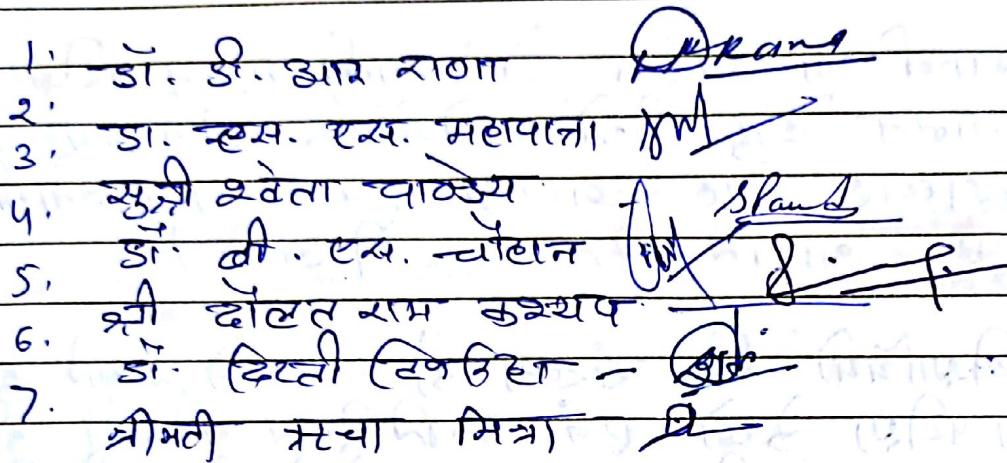 1. डॉ. डी. आर राणा
2. डा. एस. एस. महापात्रा
3. सुश्री श्वेता पाण्डेय
4. डॉ. बी. एस. चौहान
5. श्री दौलत राम कश्यप
6. डॉ. दिप्ती
7. श्रीमती ऋचा मिश्रा